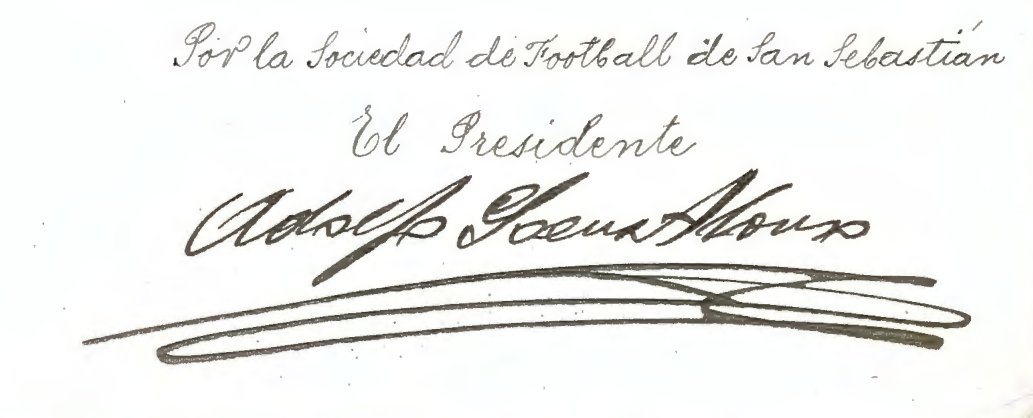 Por la Sociedad de Football de San Sebastián
El Presidente
Adolfo Saenz Alonso